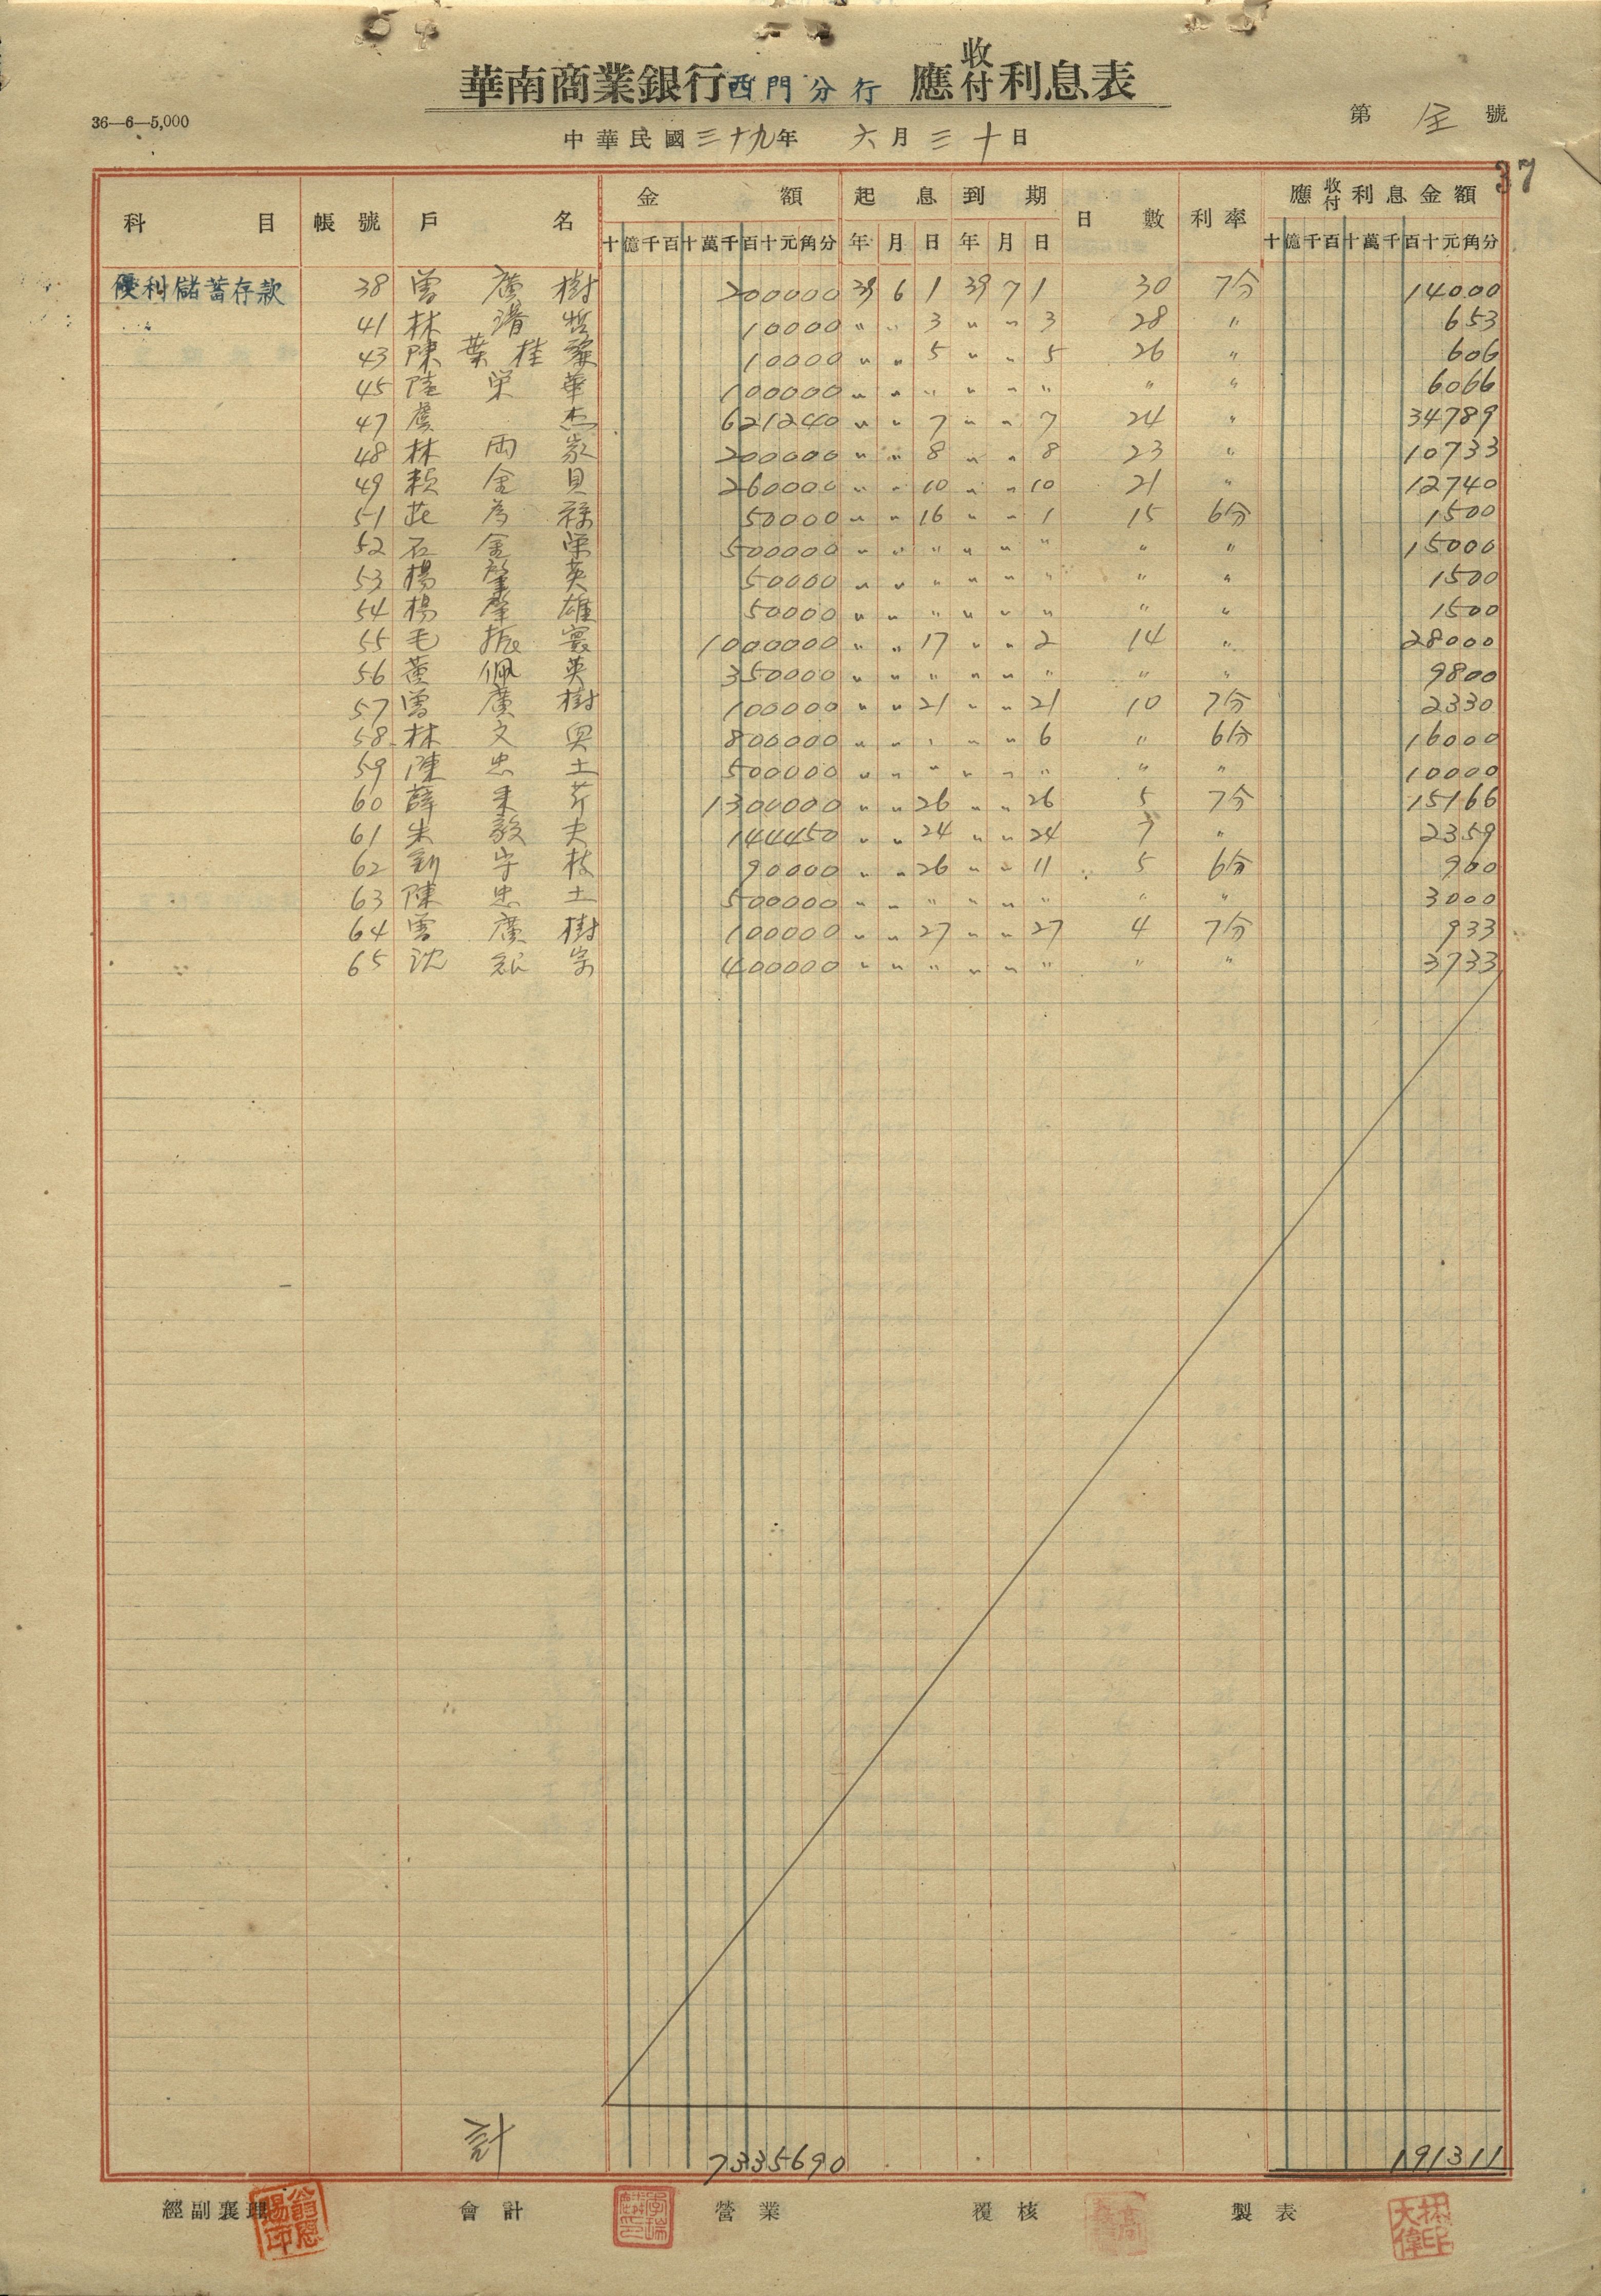 華南商業銀行西門分行 應收付利息表
36—6—5,000
第 全 號
中華民國三十九年 六月三十日
37
科目 帳號 戶名 金額 起息 到期 日數 利率 應收付利息金額
十億千百十萬千百十元角分 年 月 日 年 月 日 十億千百十萬千百十元角分
優利儲蓄存款 38 曾廣樹 200000 39 6 1 39 7 1 30 7分 14000
41 林 哲 10000 〃 〃 3 〃 〃 3 28 〃 653
43 陳葉桂 10000 〃 〃 5 〃 〃 5 26 〃 606
45 陸榮華 100000 〃 〃 〃 〃 〃 〃 〃 〃 6066
47 虞杰 621240 〃 〃 7 〃 〃 7 24 〃 34789
48 林 家 200000 〃 〃 8 〃 〃 8 23 〃 10733
49 賴金貝 260000 〃 〃 10 〃 〃 10 21 〃 12740
51 為祿 50000 〃 〃 16 〃 〃 1 15 6分 1500
52 石金榮 500000 〃 〃 〃 〃 〃 〃 〃 〃 15000
53 楊肇英 50000 〃 〃 〃 〃 〃 〃 〃 〃 1500
54 楊肇雄 50000 〃 〃 〃 〃 〃 〃 〃 〃 1500
55 毛振寰 1000000 〃 〃 17 〃 〃 2 14 〃 28000
56 黃佩英 350000 〃 〃 〃 〃 〃 〃 〃 〃 9800
57 曾廣樹 100000 〃 〃 21 〃 〃 21 10 7分 2330
58 林文 800000 〃 〃 〃 〃 〃 6 〃 6分 16000
59 陳忠土 500000 〃 〃 〃 〃 〃 〃 〃 〃 10000
60 薛 芹 1300000 〃 〃 26 〃 〃 26 5 7分 15166
61 朱毅夫 144450 〃 〃 24 〃 〃 24 7 〃 2359
62 劉守枝 90000 〃 〃 26 〃 〃 11 5 6分 900
63 陳忠土 500000 〃 〃 〃 〃 〃 〃 〃 〃 3000
64 曾廣樹 100000 〃 〃 27 〃 〃 27 4 7分 933
65 沈 宗 400000 〃 〃 〃 〃 〃 〃 〃 〃 3733
計 7335690 191311
經副襄理 會計 營業 覆核 製表
翁恩賜印
林大偉印